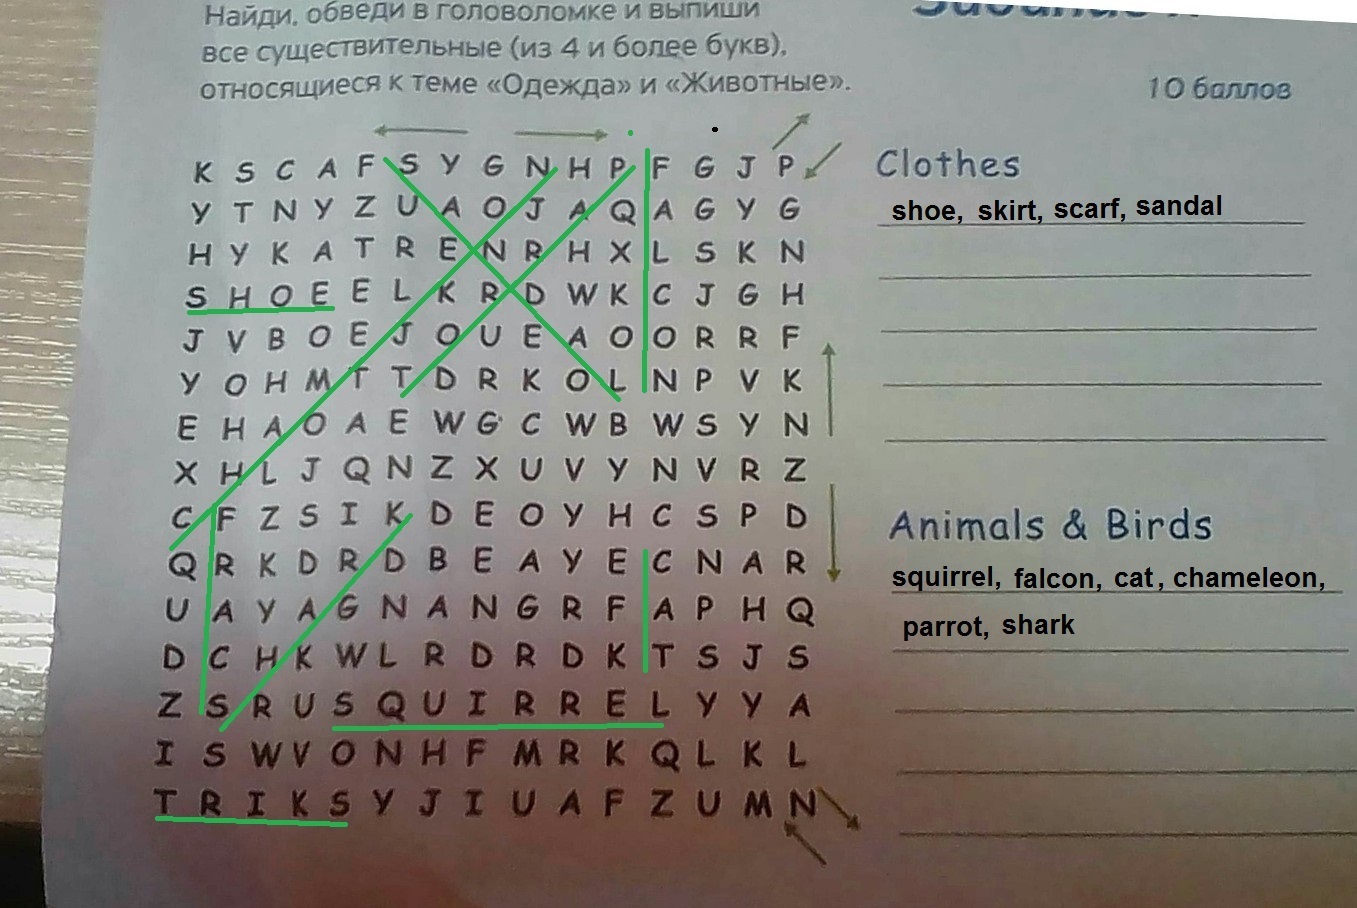 Найди, обведи в головоломке и выпиши
все существительные (из 4 и более букв),
относящиеся к теме «Одежда» и «Животные».
10 баллов
K S C A F S Y G N H P F G J P
Y T N Y Z U A O J A Q A G Y G
H Y K A T R E N R H X L S K N
S H O E E L K R D W K C J G H
J V B O E J O U E A O O R R F
Y O H M T T D R K O L N P V K
E H A O A E W G C W B W S Y N
X H L J Q N Z X U V Y N V R Z
C F Z S I K D E O Y H C S P D
Q R K D R D B E A Y E C N A R
U A Y A G N A N G R F A P H Q
D C H K W L R D R D K T S J S
Z S R U S Q U I R R E L Y Y A
I S W V O N H F M R K Q L K L
T R I K S Y J I U A F Z U M N
Clothes
shoe, skirt, scarf, sandal
Animals & Birds
squirrel, falcon, cat, chameleon,
parrot, shark